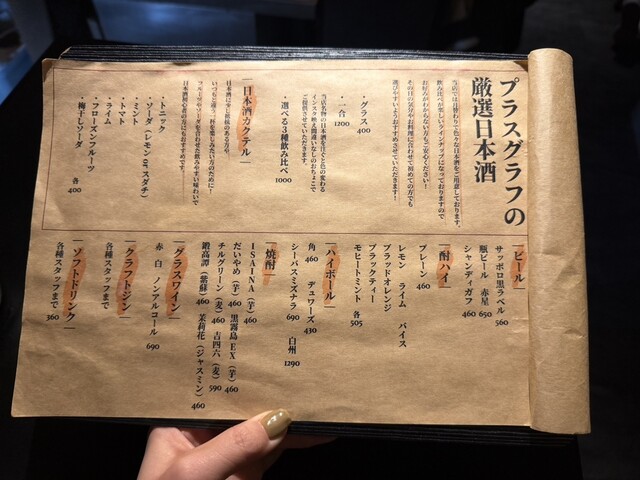 プラスグラフの
厳選日本酒
当店では日替わりで色々な日本酒をご用意しております。
飲み比べが楽しいラインナップになっておりますので
お好みがわからない方もご安心ください!
その日の気分やお料理に合わせて初めての方でも
選びやすいようおすすめさせていただきます!
・グラス
400
・一合
1200
当店名物の日本酒を注ぐと色の変わる
インスタ映え間違いなしのおちょこで
ご提供させていただきます。
・選べる3種飲み比べ
1000
日本酒カクテル
日本酒は少し抵抗のある方や、
いつもと違う一杯を楽しみたい方のために!
フルーツやソーダを合わせた飲みやすい味わいで
日本酒初心者の方にもおすすめです。
・トニック
・ソーダ(レモン or スダチ)
・ミント
・トマト
・ライム
・フローズンフルーツ
・梅干しソーダ
各
400
ビール
サッポロ黒ラベル 560
瓶ビール 赤星 650
シャンディガフ 460
酎ハイ
プレーン 460
レモン ライム バイス
ブラッドオレンジ
ブラックティー
モヒートミント 各505
ハイボール
角 460 デュワーズ 430
シーバスミズナラ 690 白州 1290
焼酎
ISAINA(芋)460
だいやめ(芋)460 黒霧島EX(芋)460
チルグリーン(麦)460 吉四六(麦)590
鍛高譚(紫蘇)460 茉莉花(ジャスミン)460
グラスワイン
赤 白 ノンアルコール 690
クラフトジン
各種スタッフまで
ソフトドリンク
各種スタッフまで 360